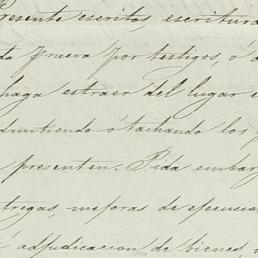 Presente escritos, escritura
prueva por testigos, ó
haga estraer del lugar
ó tachando los
presenten. Pida embar
tregas, mejoras de ejecucio
adjudicacion de bienes,